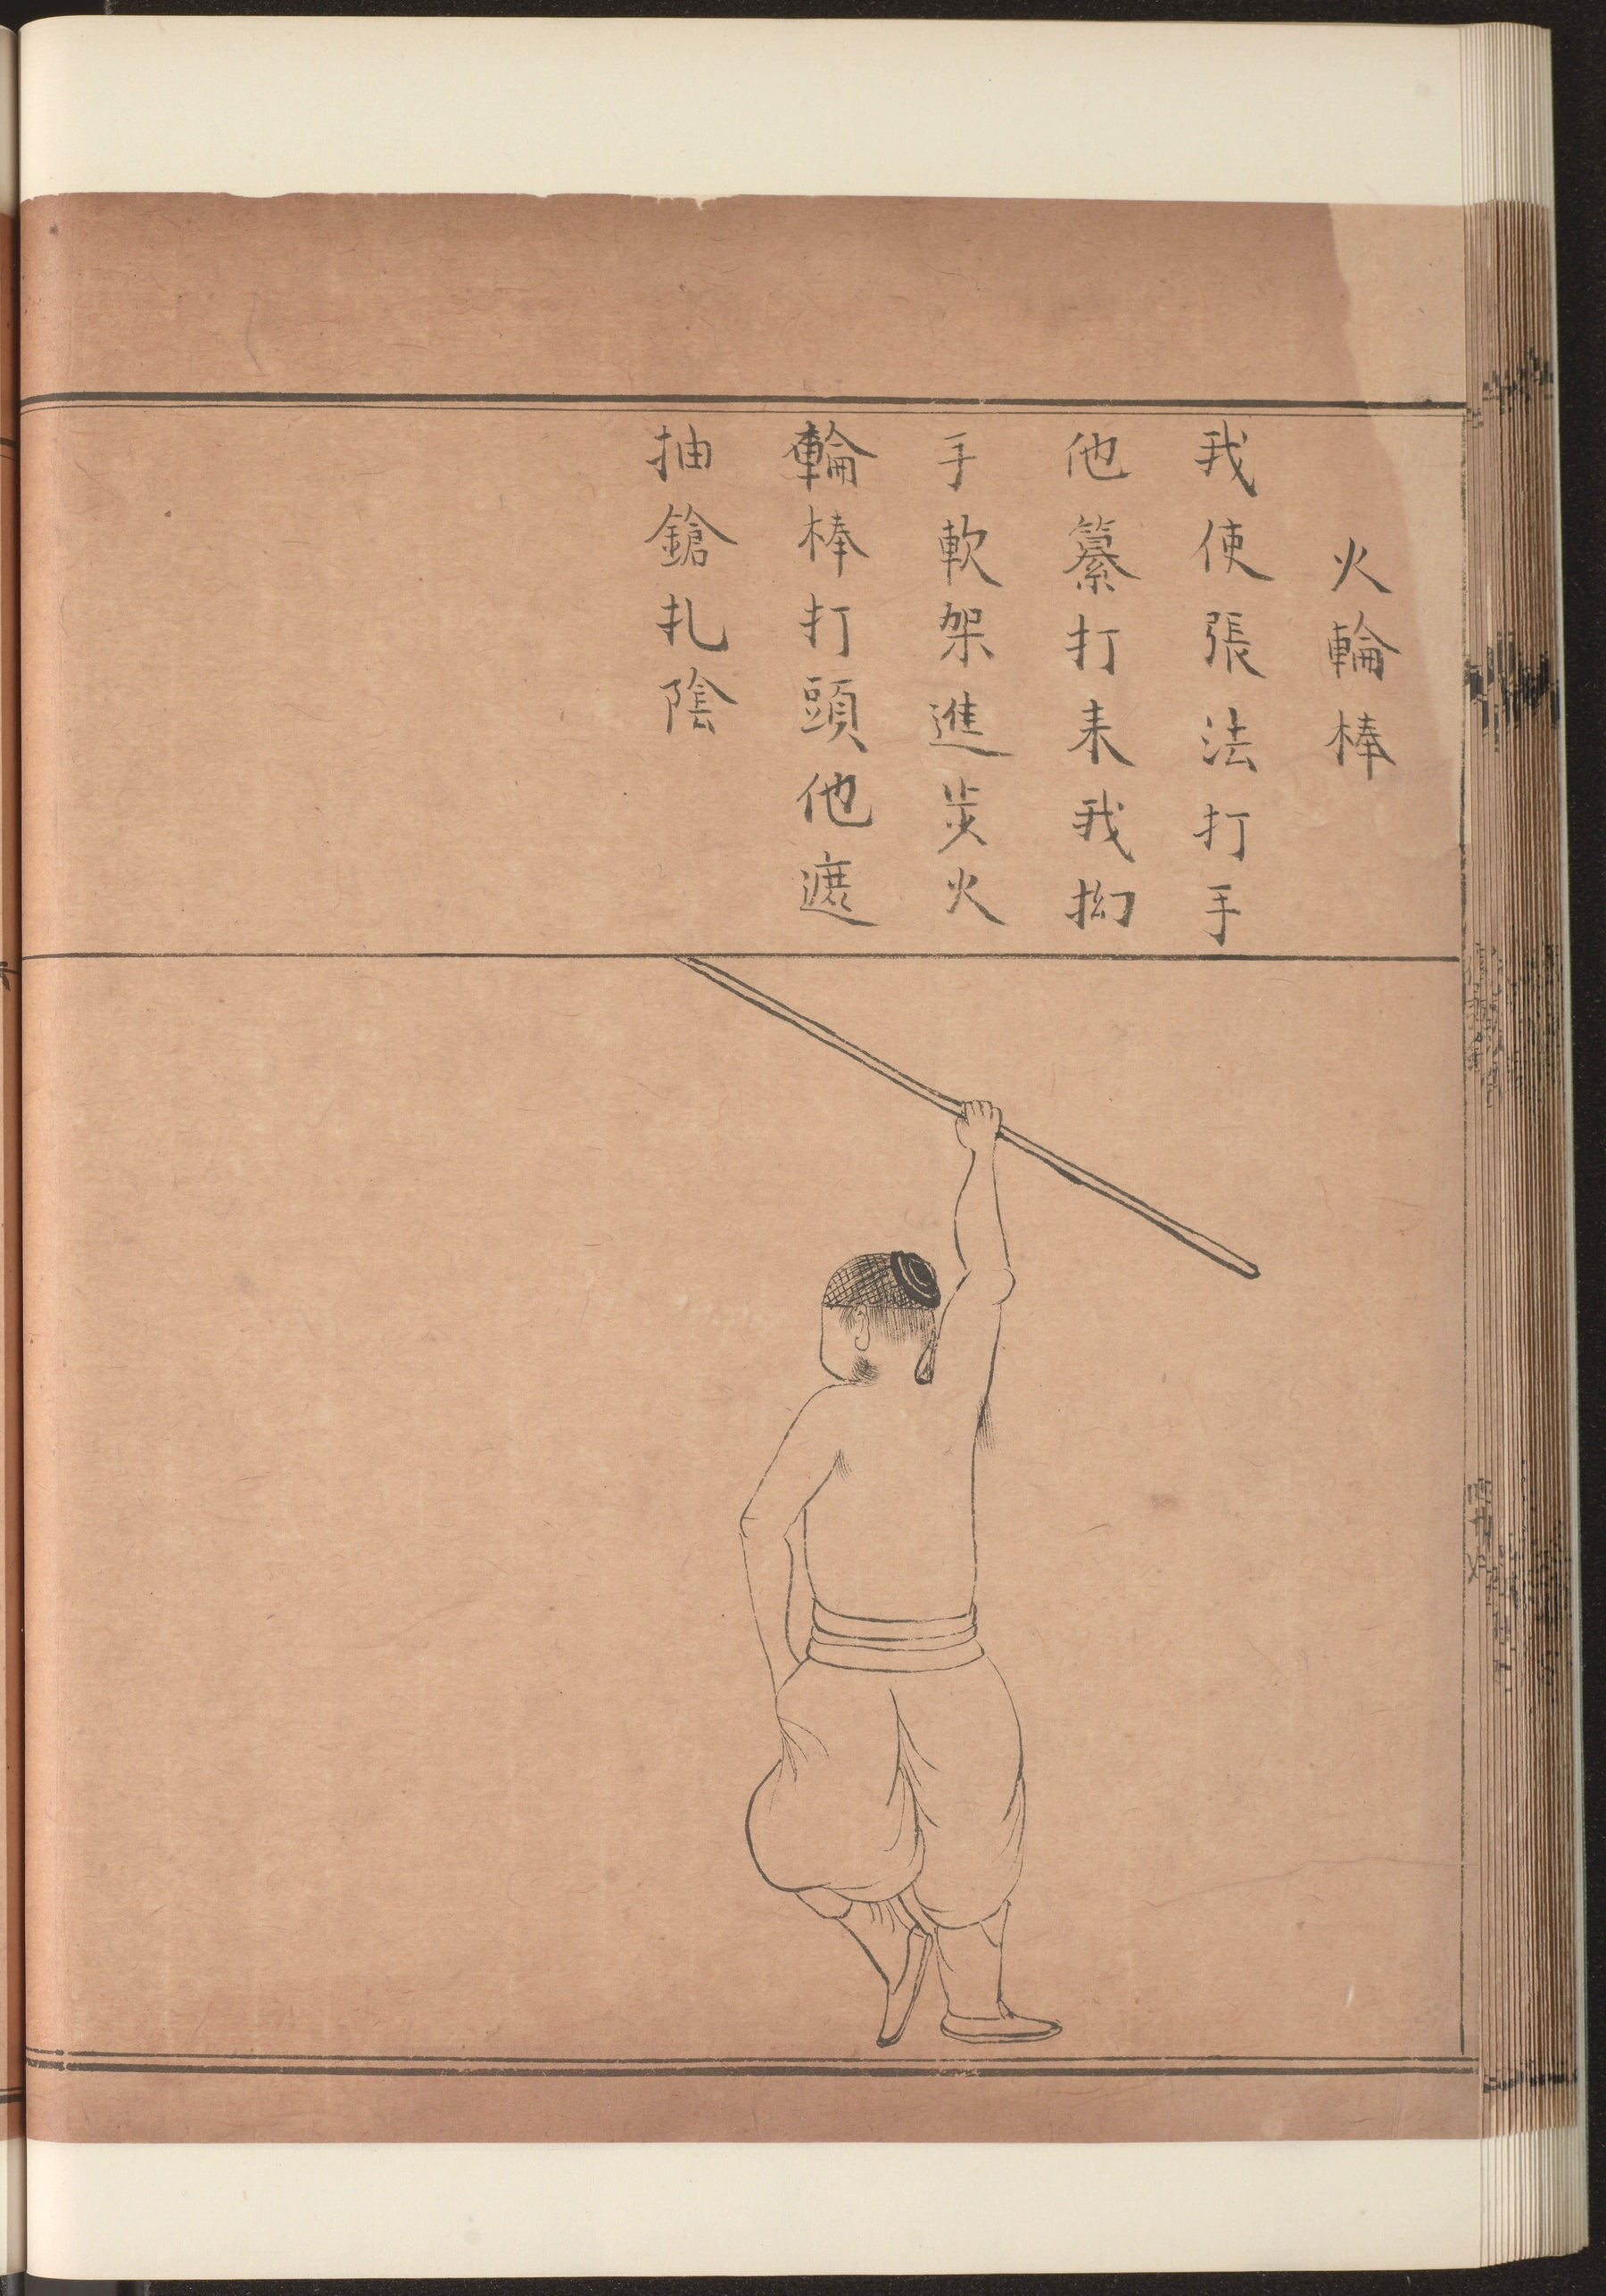 火輪棒
我使張法打手
他纂打耒我拗
手軟架進炗火
輪棒打頭他遮
抽鎗扎陰